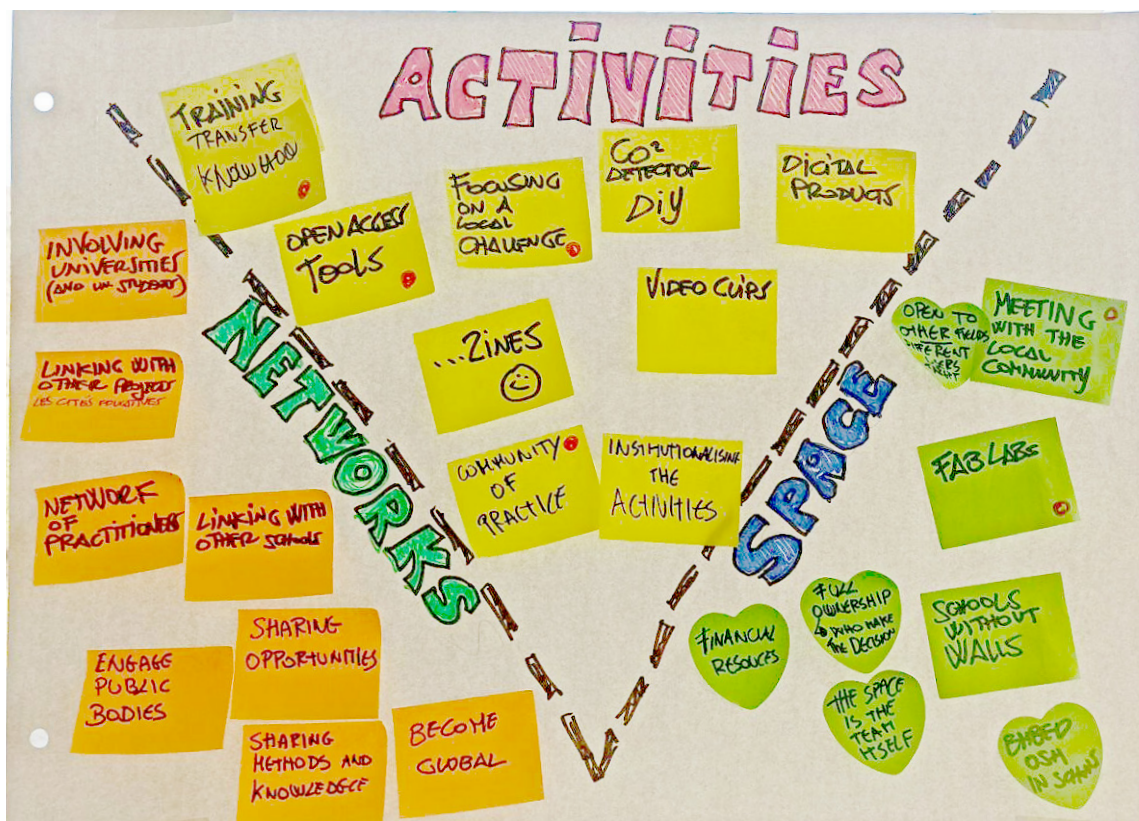 ACTIVITIES
TRAINING
TRANSFER
KNOWHOW
OPEN ACCESS
TOOLS
FOCUSING
ON A
LOCAL
CHALLENGE
CO²
DETECTOR
DiY
DIGITAL
PRODUCTS
VIDEO CLIPS
...ZINES
COMMUNITY
OF
PRACTICE
INSTITUTIONALISING
THE
ACTIVITIES
NETWORKS
INVOLVING
UNIVERSITIES
(AND STUDENTS)
LINKING WITH
OTHER PROJECTS
LES CITÉS
NETWORK
OF
PRACTITIONERS
LINKING WITH
OTHER SCHOOLS
SHARING
OPPORTUNITIES
ENGAGE
PUBLIC
BODIES
SHARING
METHODS AND
KNOWLEDGE
BECOME
GLOBAL
SPACE
OPEN TO
OTHER FIELDS
DIFFERENT
MEETING
WITH THE
LOCAL
COMMUNITY
FAB LABS
FULL
OWNERSHIP
WHO MAKE
THE DECISION
FINANCIAL
RESOUCES
SCHOOLS
WITHOUT
WALLS
THE SPACE
IS THE
TEAM
ITSELF
EMBED
OSH
IN SCHOOLS